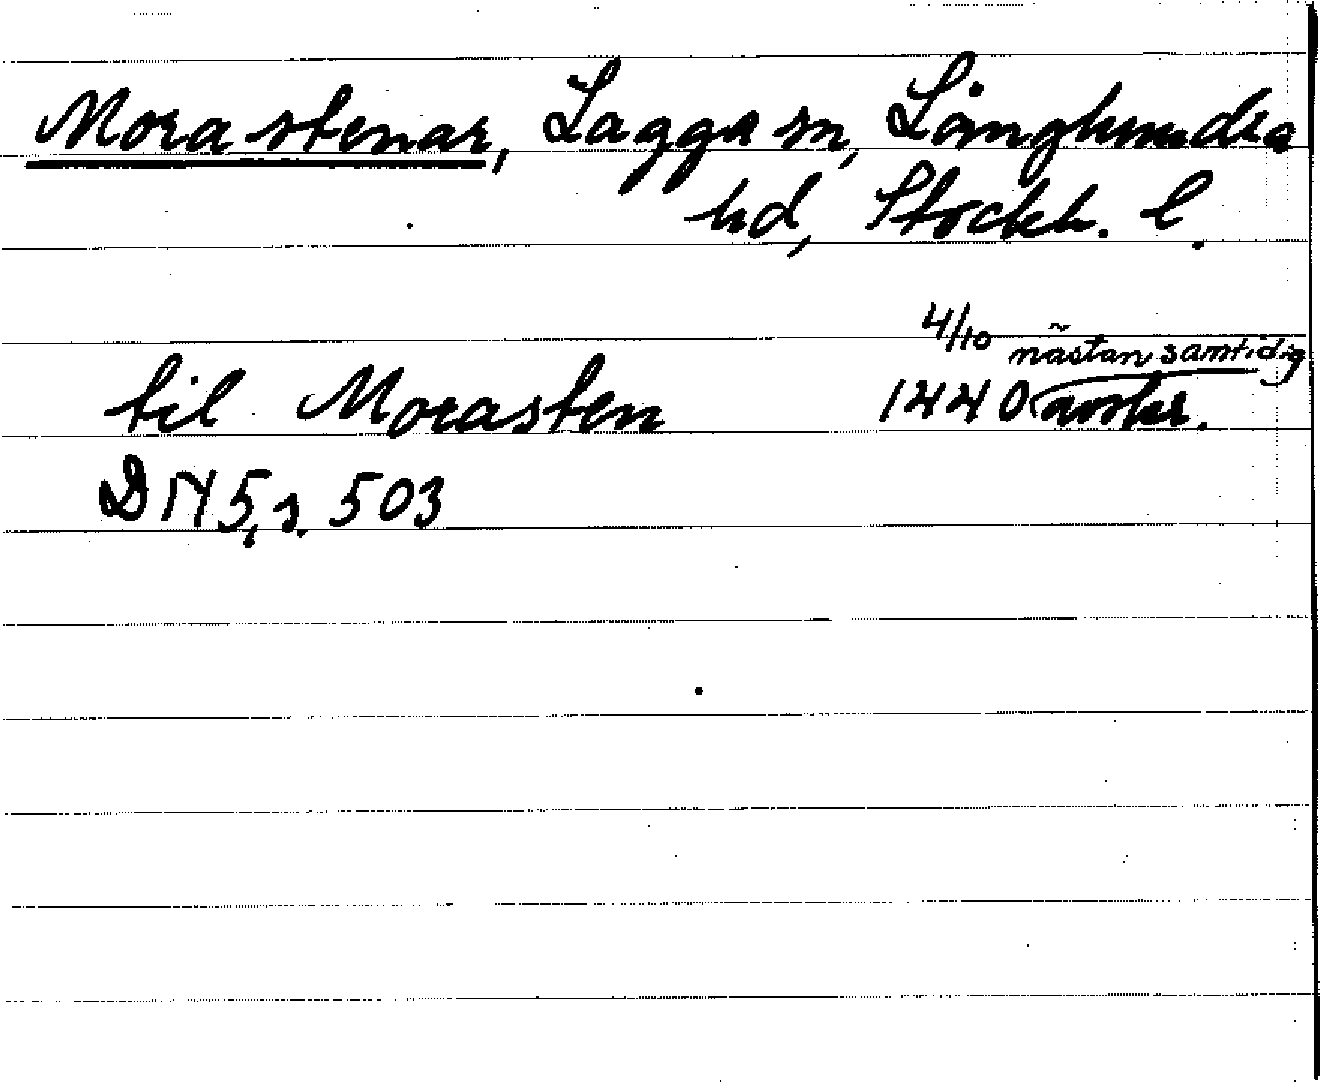 Mora stenar, Lagga sn, Långhundra
hd, Stockh. l.
4/10 nästan samtidig
til Morasten 1440 avskr.
DN 5, s. 503